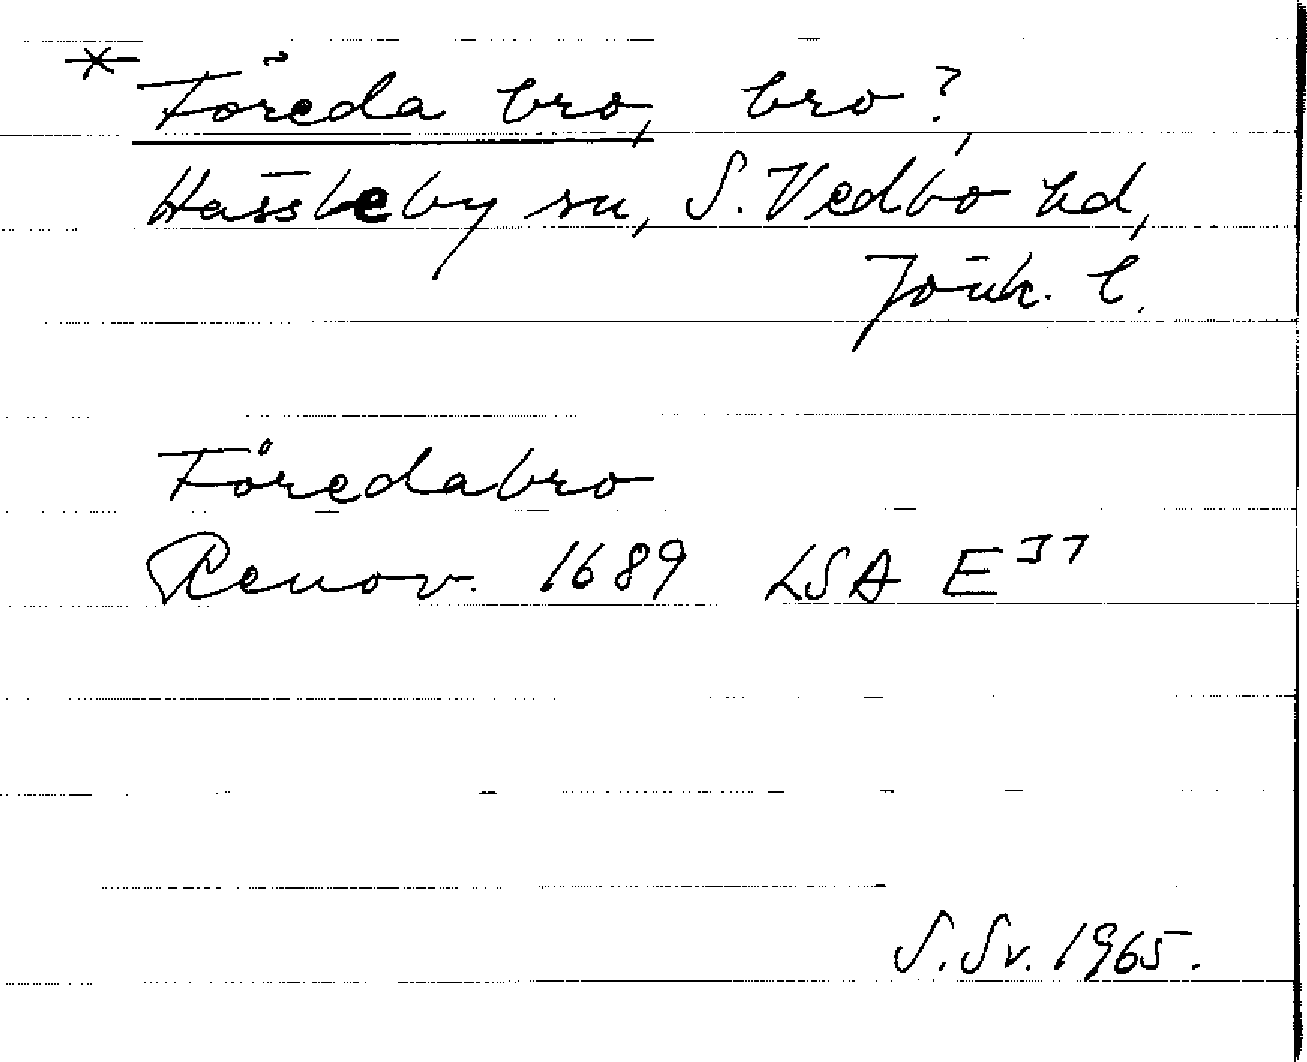 * Föreda bro, bro?,
Hässleby sn, S. Vedbo hd,
Jönk. l.
Föredabro
Renov. 1689 LSA E 37
S. Sv. 1965.